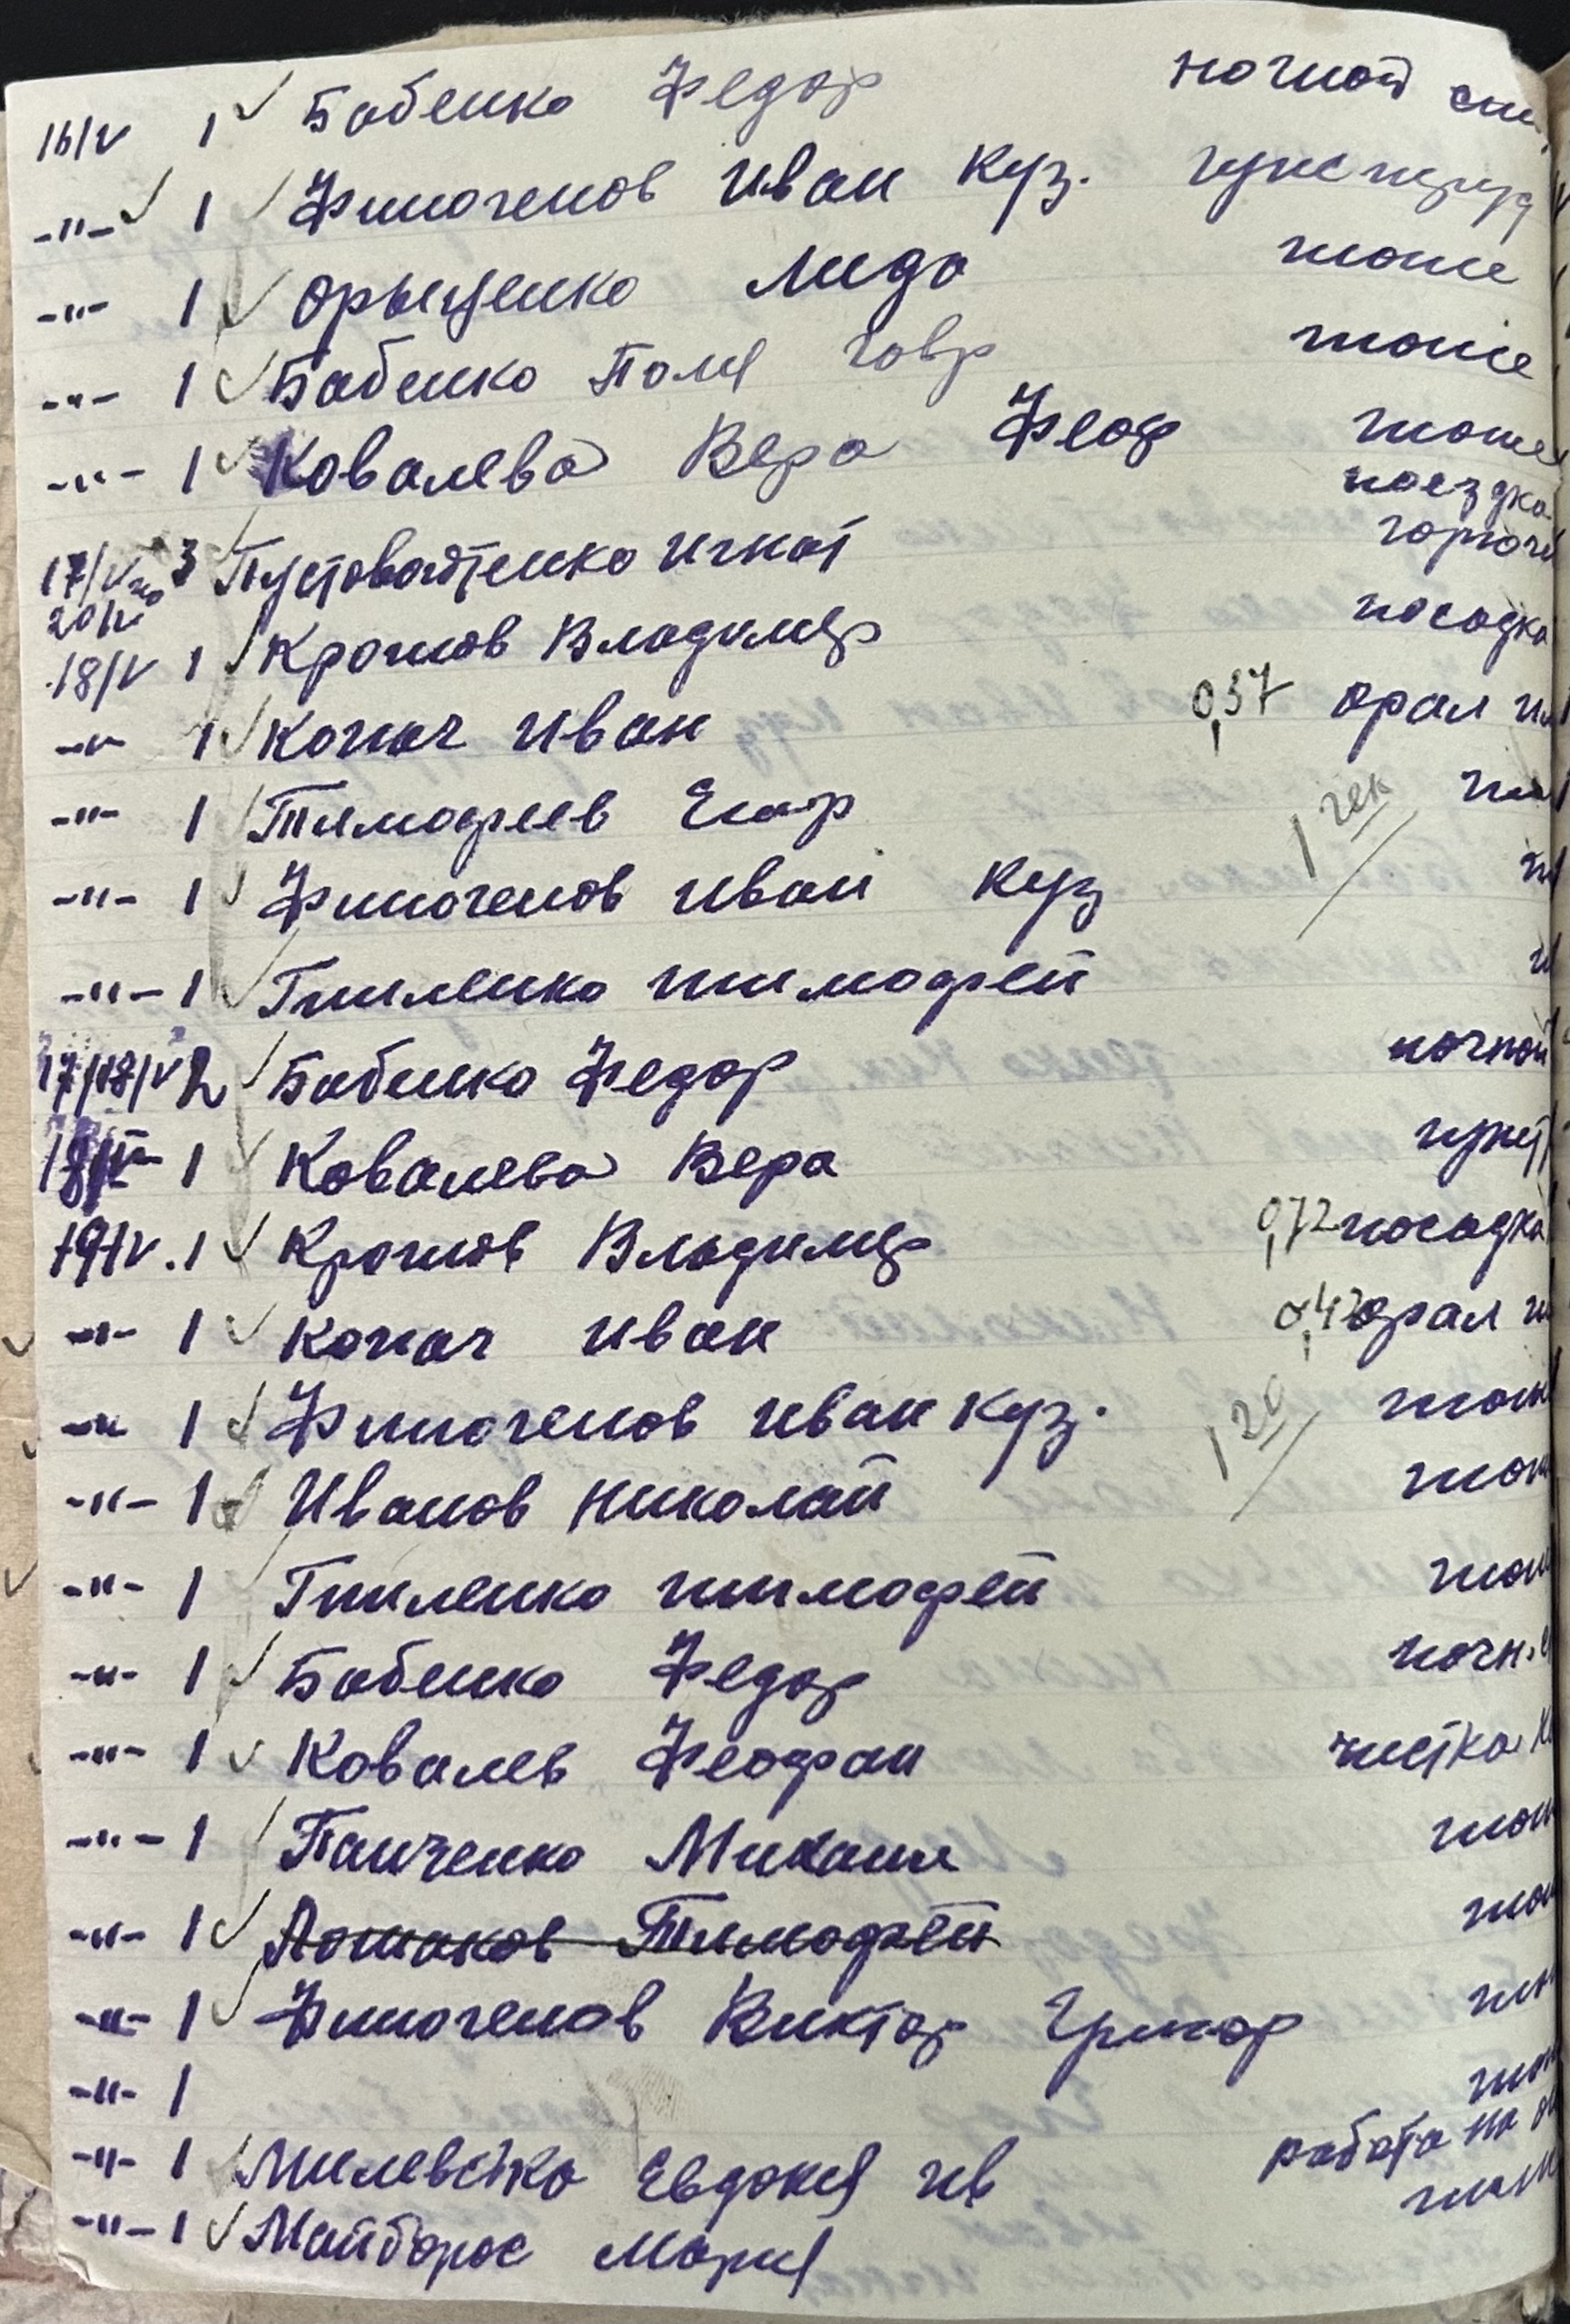 16/V 1 Бабенко Федор ночной
-"- 1 Финогенов Иван Куз.
-"- 1 Орыщенко Лида тоже
-"- 1 Бабенко Поля Гавр тоже
-"- 1 Ковалева Вера Феоф тоже
поездка
17/V по 3 Пустовойтенко Игнат горюч
20/V
18/V 1 Кротов Владимир посадка
-"- 1 Копач Иван 0,37 орал
-"- 1 Тимофеев Егор
-"- 1 Финогенов Иван Куз 1 гек
-"- 1 Гниленко Тимофей
17/18/V 2 Бабенко Федор ночной
18/V 1 Ковалева Вера
19/V. 1 Кротов Владимир 0,72 посадка
-"- 1 Копач Иван 0,42 орал
-"- 1 Финогенов Иван Куз. тож
-"- 1 Иванов Николай тож
-"- 1 Гниленко Тимофей
-"- 1 Бабенко Федор ночн.
-"- 1 Ковалев Феофан чистка
-"- 1 Панченко Михаил
-"- 1 Лошаков Тимофей
-"- 1 Финогенов Виктор Григор
-"- 1
-"- 1 Милевська Евдокия Ив работа на
-"- 1 Майборос Мария